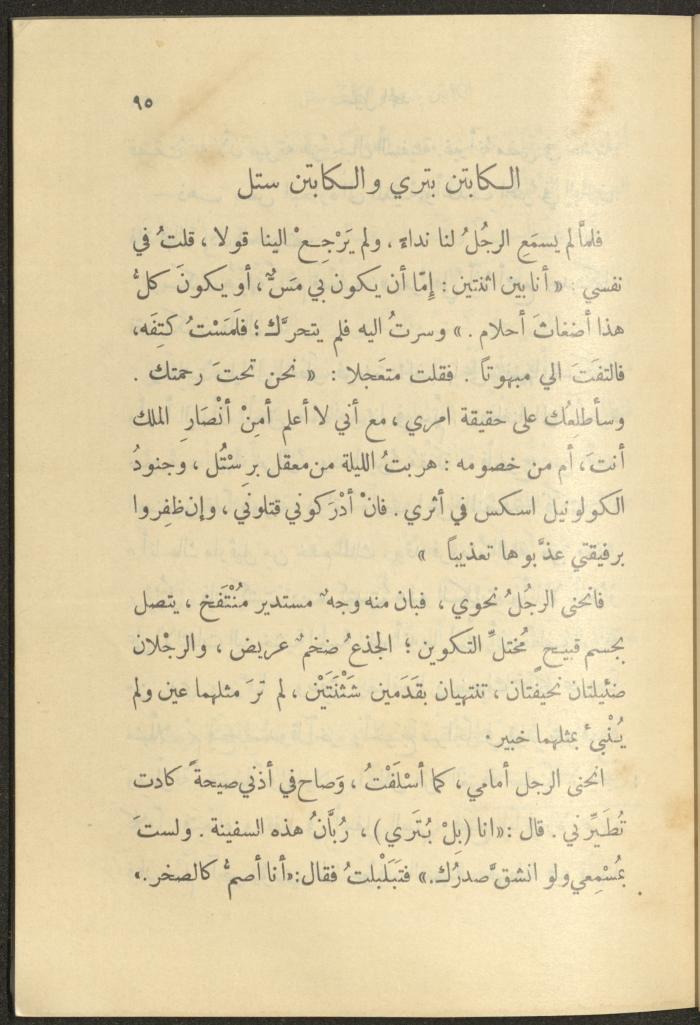 ٩٥
الكابتن بتري والكابتن ستل
فلمَّا لم يسمَع الرجُلُ لنا نداءً ، ولم يَرْجِعْ الينا قولا ، قلتُ في
نفسي : « أنا بين اثنتين : إِمّا أن يكون بي مَسٌّ ، أو يكونَ كلُّ
هذا أضغاثَ أحلام . » وسرتُ اليه فلم يتحرَّك ؛ فلَمَسْتُ كتِفَه،
فالتفَتَ الي مبهوتاً . فقلت متعَجلا : « نحن تحتَ رحمتك .
وسأطلِعُك على حقيقة امري ، مع أني لا أعلم أمِنْ أنْصَارِ الملك
أنتَ ، أم من خصومه : هربتُ الليلة من معقل برِسْتُل ، وجنودُ
الكولونيل اسكس في أثري . فانْ أدْرَكوني قتلوني ، وإن ظفِروا
برفيقتي عذَّبوها تعذيباً »
فانحنى الرجُلُ نحوي ، فبان منه وجهٌ مستدير مُنْتَفخ ، يتصل
بجسم قبيحٍ مُختلِّ التكوين ؛ الجذعُ ضخمٌ عريض ، والرجْلان
ضئيلتان نحيفتان ، تنتهيان بقَدَمين شَثْنَتَيْن ، لم ترَ مثلهما عين ولم
يُنْبِئْ بمثلهما خبير .
انحنى الرجل أمامي ، كما أسْلَفْتُ ، وَصاح في أذني صيحةً كادت
تُطَيِّرني . قال : «انا (بِلْ بُتَري) ، رُبَّانُ هذه السفينة . ولستَ
بمُسْمِعي ولو انشقَّ صدرُك.» فتَبَلْبلتُ فقال: «أنا أصمُّ كالصخر .»